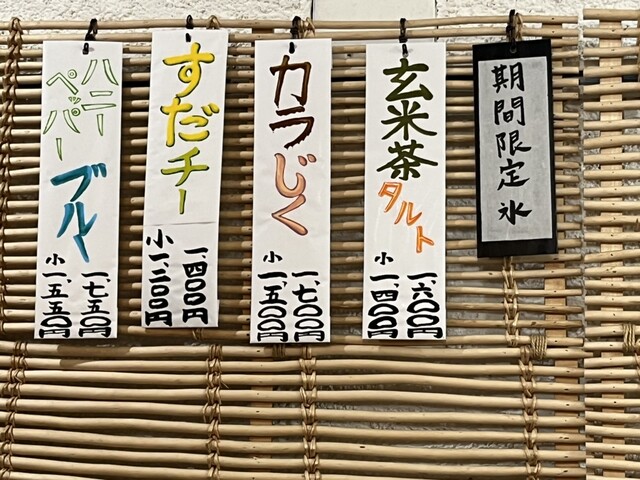 期間限定氷
玄米茶
タルト
一、六〇〇円
小一、四〇〇円
カラじく
一、七〇〇円
小一、五〇〇円
すだチー
一、四〇〇円
小一、二〇〇円
ハニー
ペッパー
ブルー
一、七五〇円
小一、五五〇円